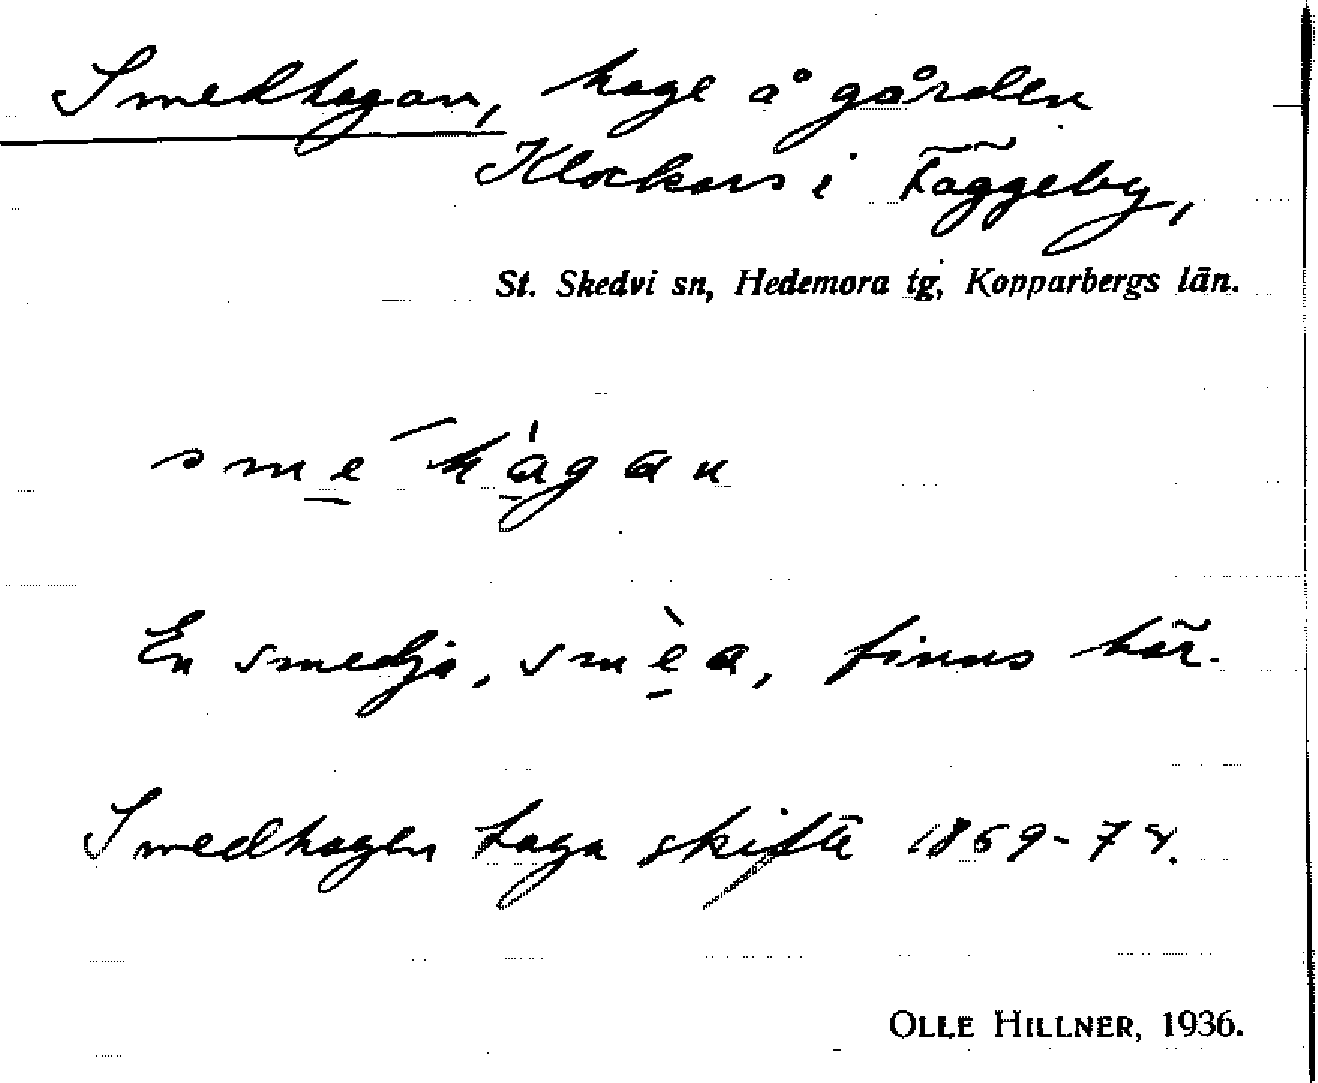 Smedhagan, hage å gården
Klockars i Fäggeby,
St. Skedvi sn, Hedemora tg, Kopparbergs län.
smé hàgan
En smedja, smèa, finns här.
Smedhagen Laga skifte 1869-74.
OLLE HILLNER, 1936.